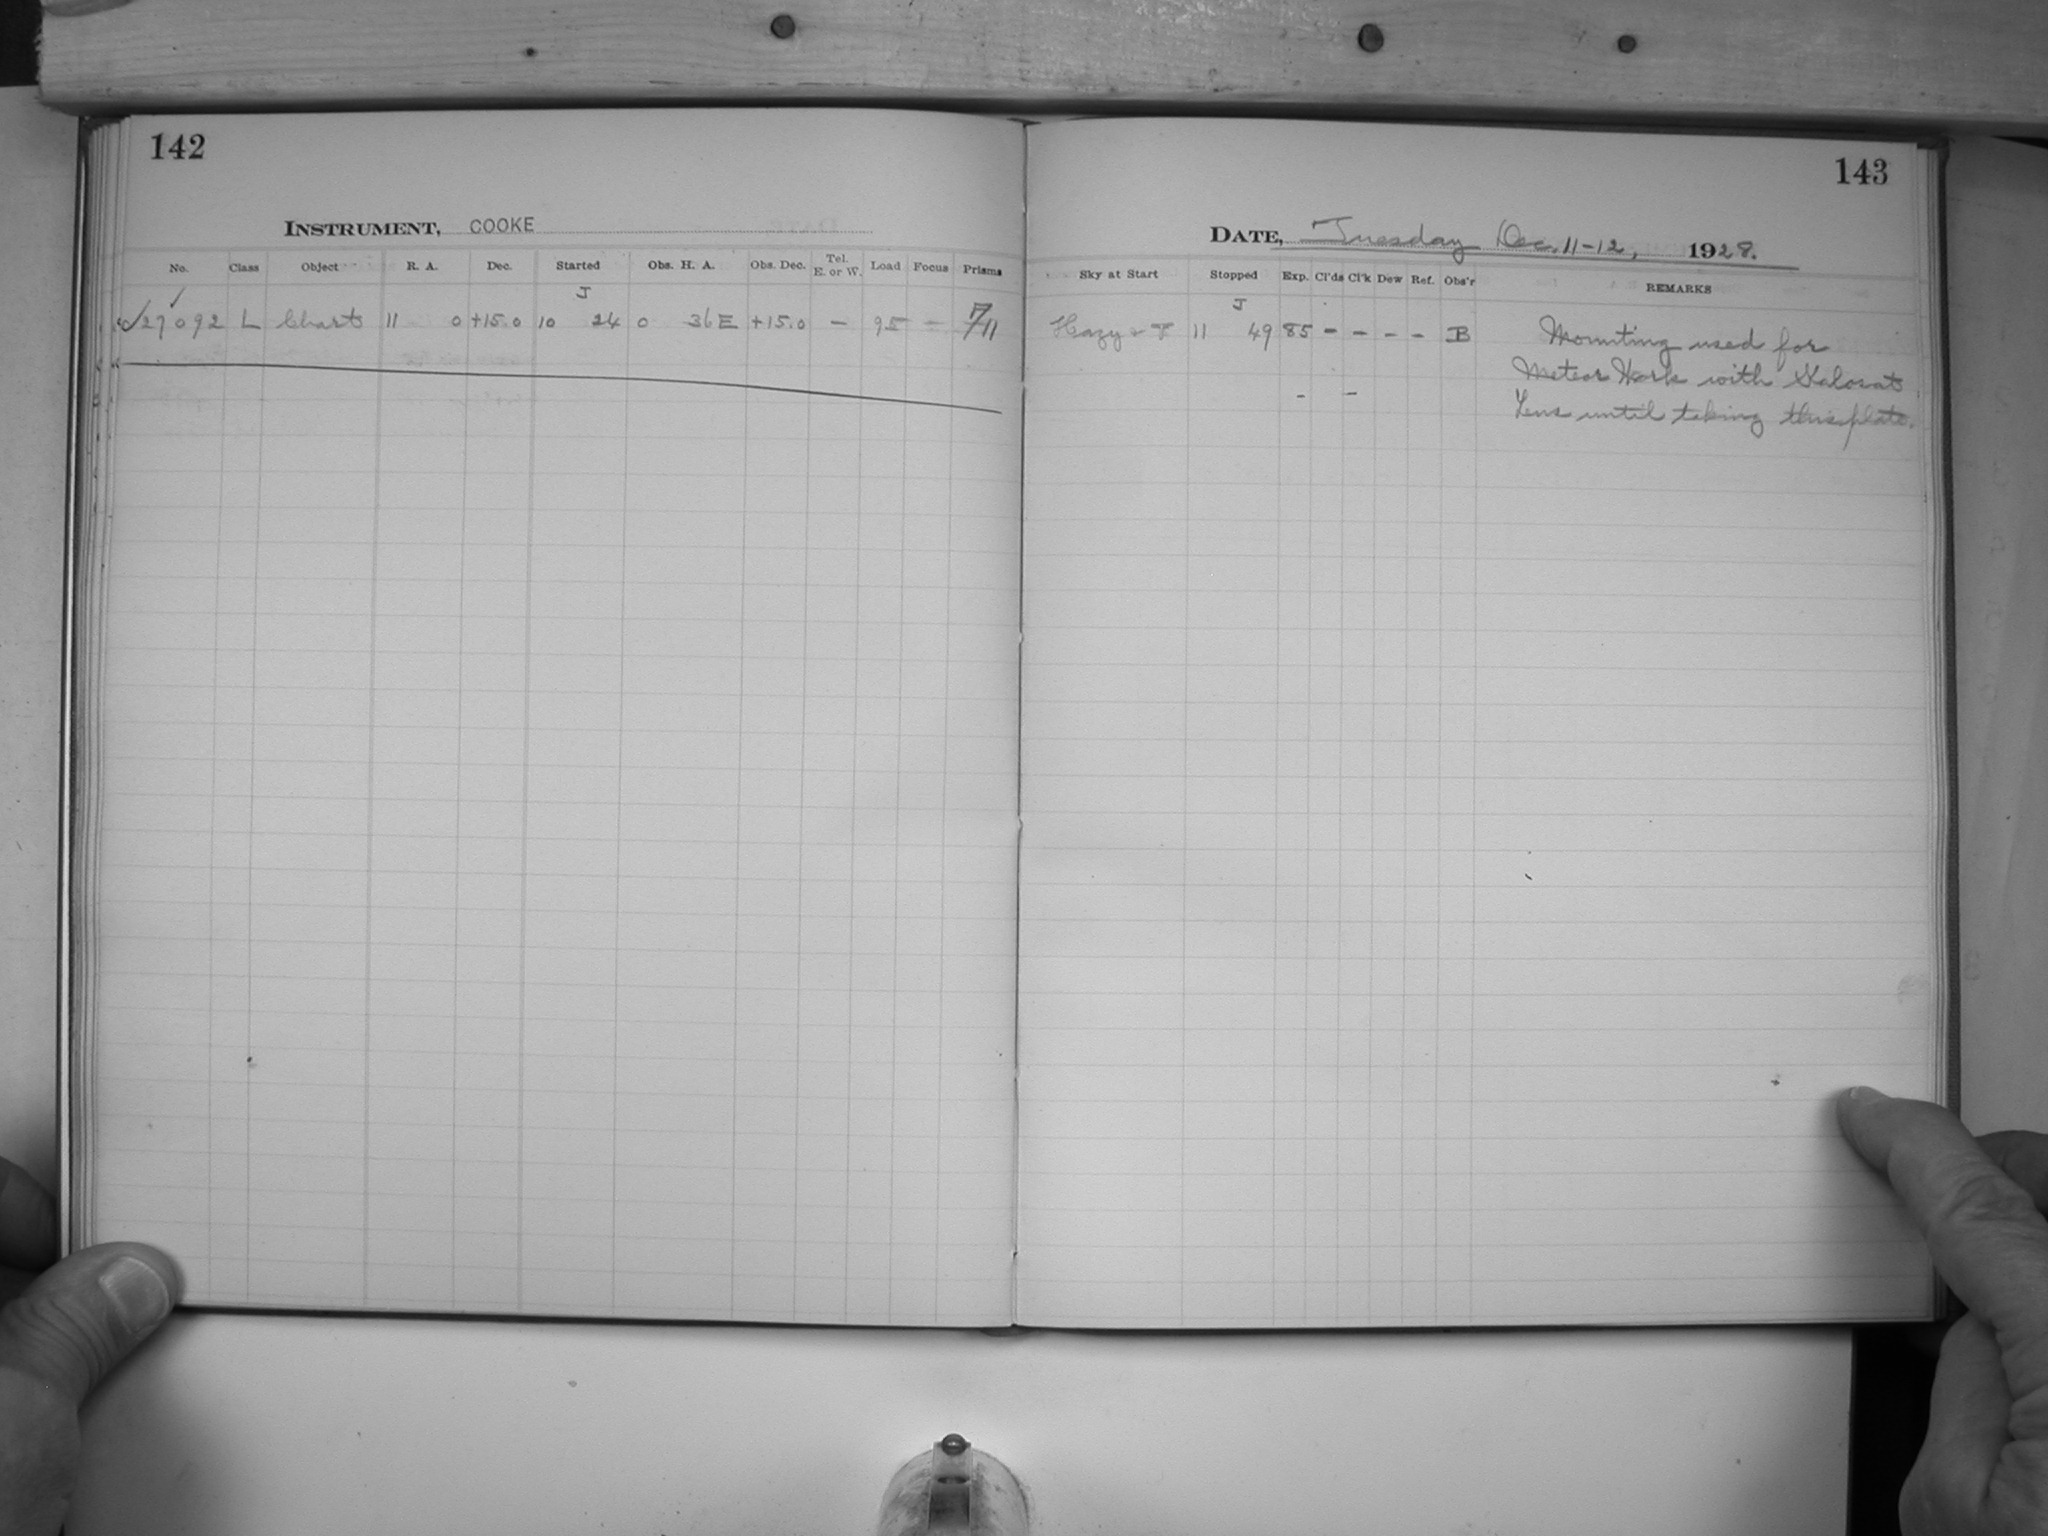 142
INSTRUMENT, COOKE
No. Class Object R. A. Dec. Started Obs. H. A. Obs. Dec. Tel. E. or W. Load Focus Prisms
J
✓27092 L Chart 11 0 +15.0 10 24 0 36E +15.0 – 95 – 7/11
143
DATE, Tuesday Dec. 11-12, 1928.
Sky at Start Stopped Exp. Cl'ds Cl'k Dew Ref. Obs'r REMARKS
J
Hazy 11 49 85 – – – – B Mounting used for
– – Meteor Work with
Lens until taking this plate.